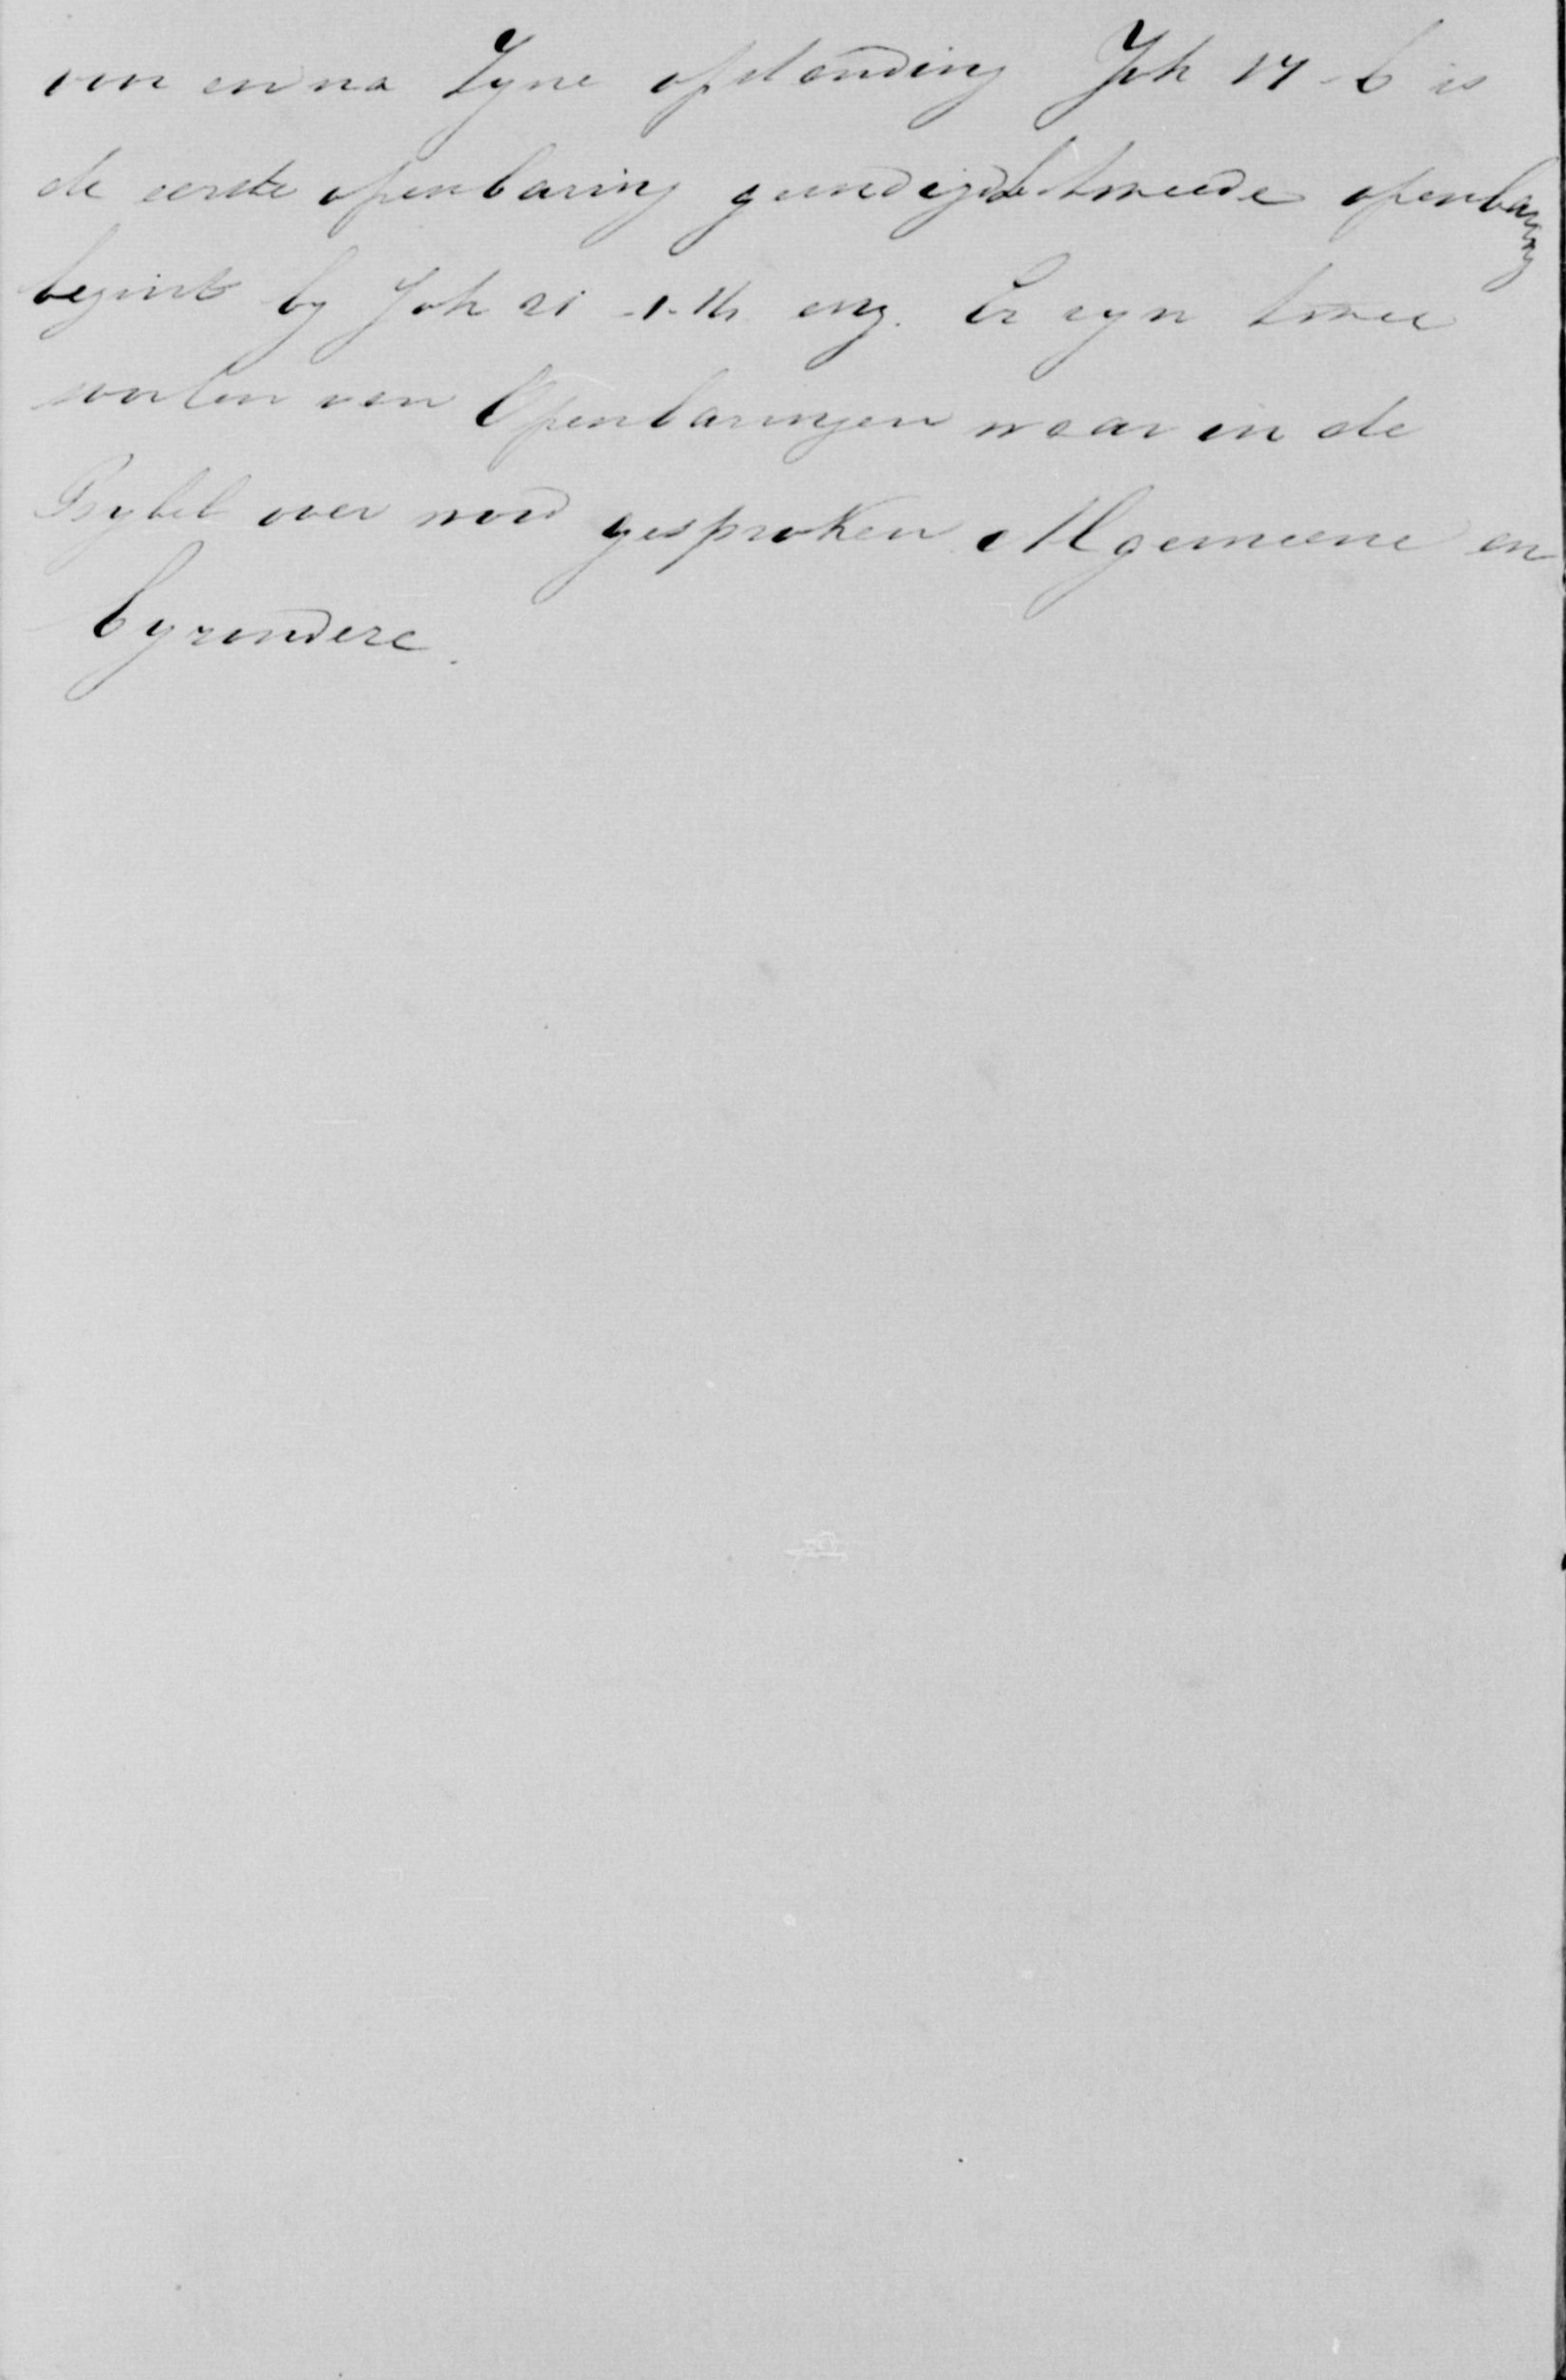 voor en na Zyne opstanding Joh 17-6 is
de eerste openbaring geeindigd de tweede openbaring
begint by Joh 21 -1-14 enz. Er zyn twee
soorten van Openbaringen waar in de
Bybel over word gesproken Algemeene en
byzondere.